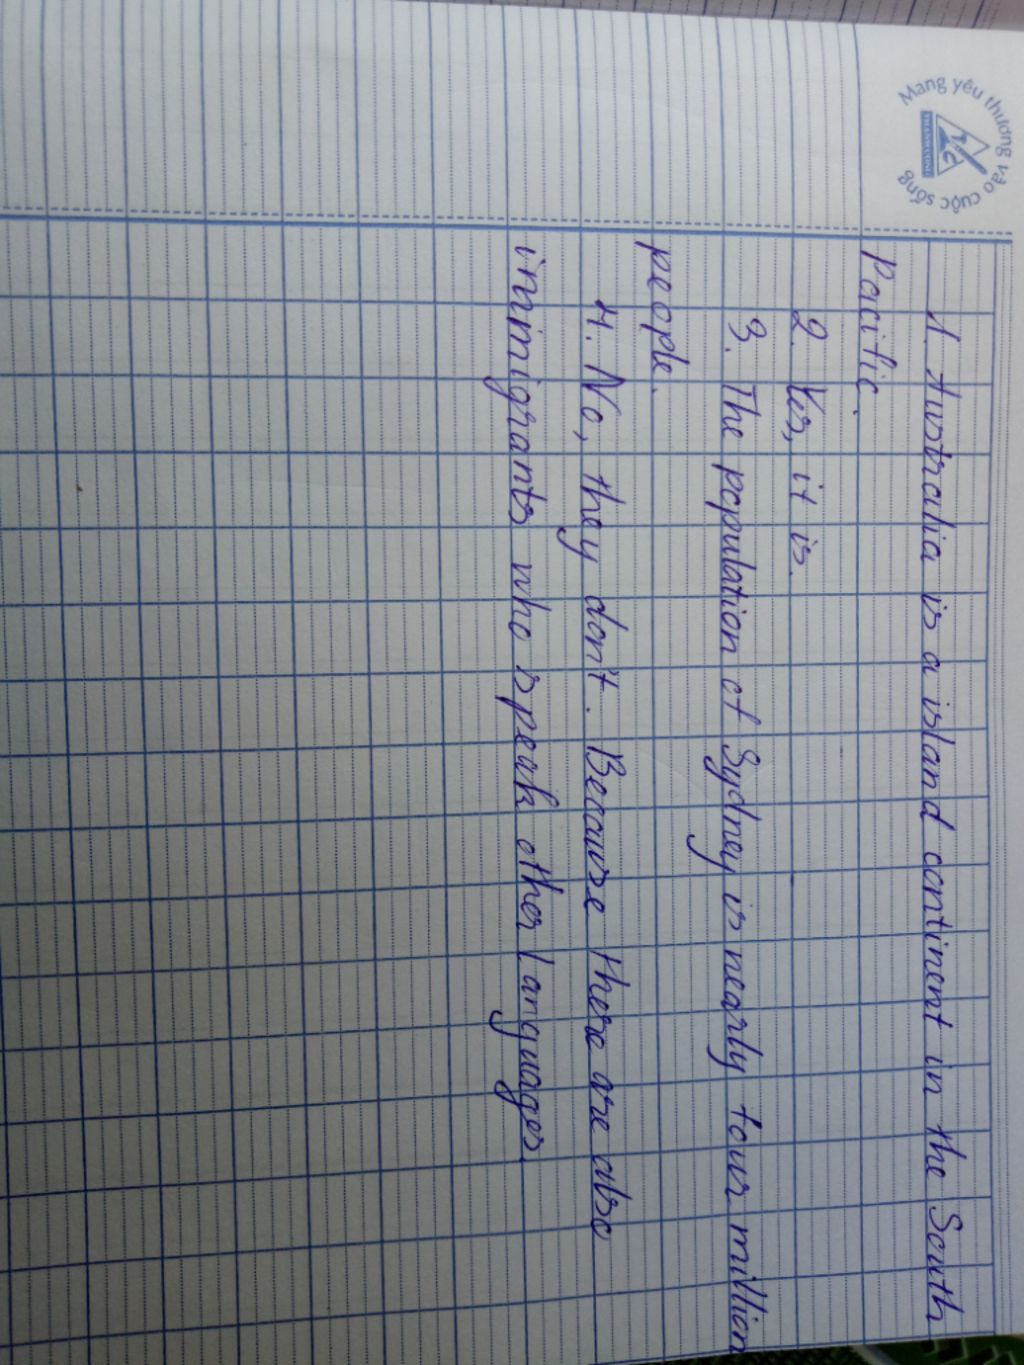 Mang yêu thương vào cuộc sống
1. Australia is a island continent in the South
Pacific.
2. Yes, it is.
3. The population of Sydney is nearly four million
people.
4. No, they don't. Because there are also
inmigrants who speak other languages.